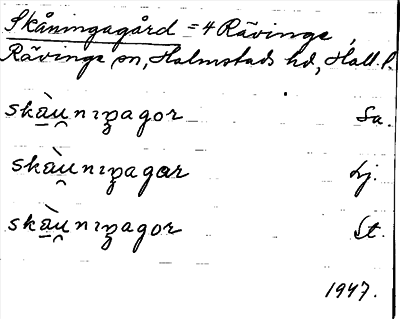 Skåningagård = 4 Rävinge,
Rävinge sn, Halmstads hd, Hall. l.
skàu̯nıŋagor Sa.
skàu̯nıŋagar Lj.
skàu̯nıŋagor St.
1947.